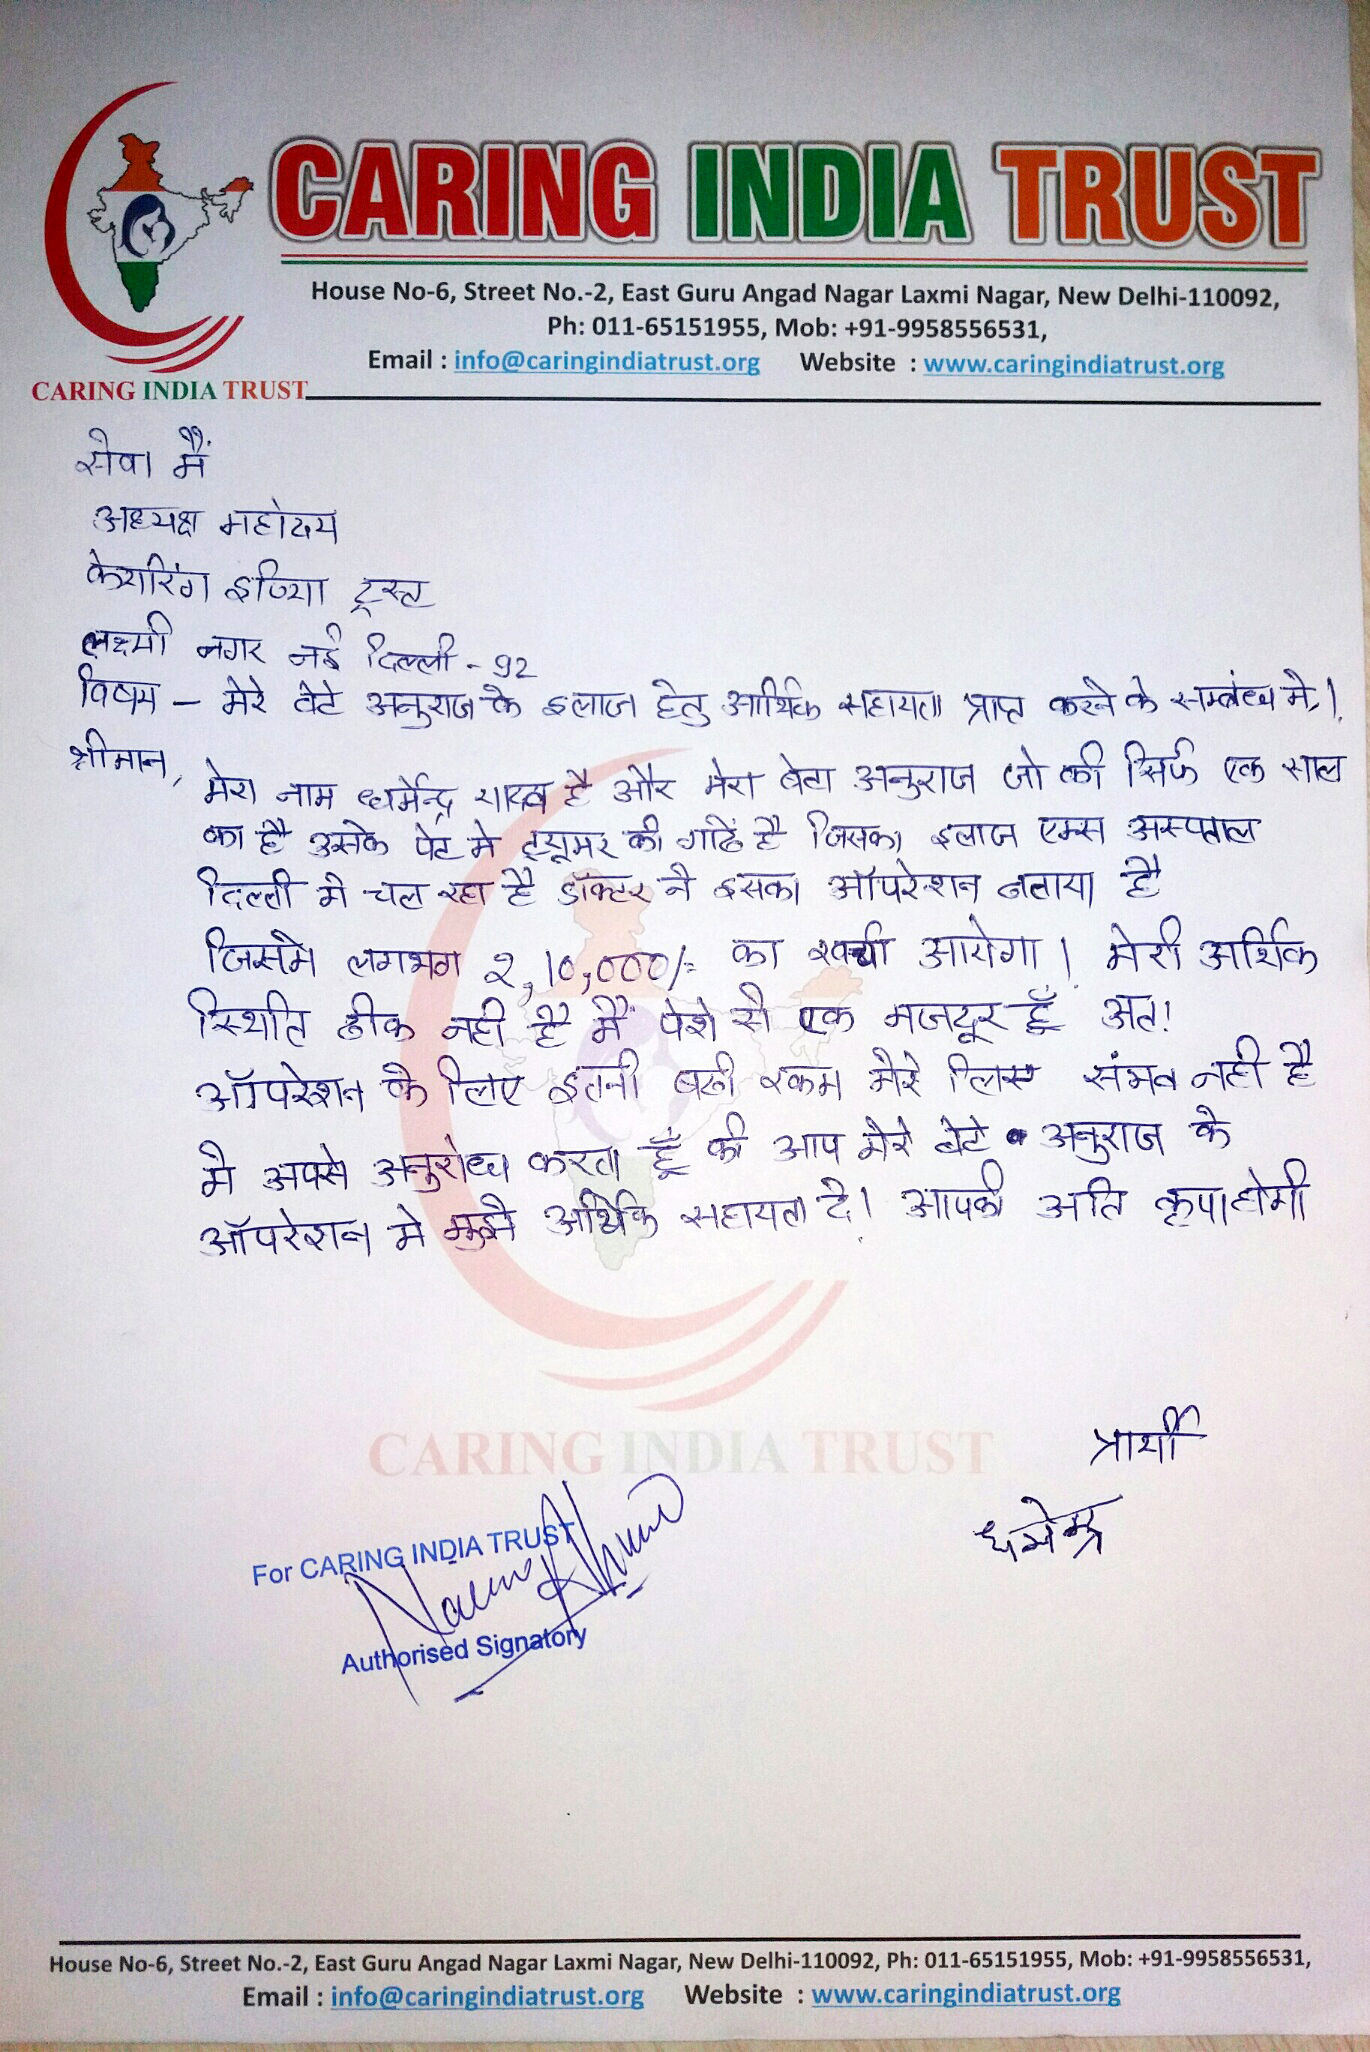 CARING INDIA TRUST
House No-6, Street No.-2, East Guru Angad Nagar Laxmi Nagar, New Delhi-110092,
Ph: 011-65151955, Mob: +91-9958556531,
Email : info@caringindiatrust.org Website : www.caringindiatrust.org
CARING INDIA TRUST
सेवा मैं
अध्यक्ष महोदय
केयारिंग इण्डिया ट्रस्ट
लक्ष्मी नगर नई दिल्ली - 92
विषय - मेरे बेटे अनुराज के इलाज हेतु आर्थिक सहायता प्राप्त करने के सम्बंध मे।
श्रीमान,
मेरा नाम धर्मेन्द्र यादव है और मेरा बेटा अनुराज जो की सिर्फ एक साल
का है उसके पेट मे ट्यूमर की गाठें है जिसका इलाज एम्स अस्पताल
दिल्ली मे चल रहा है डॉक्टर ने इसका ऑपरेशन बताया है
जिसमे लगभग 2,10,000/- का खर्चा आयेगा। मेरी आर्थिक
स्थिति ठीक नही है मैं पेशे से एक मजदूर हूँ अत!
ऑपरेशन के लिए इतनी बडी रकम मेरे लिए संभव नही है
मै आपसे अनुरोध करता हूँ की आप मेरे बेटे अनुराज के
ऑपरेशन मे मुझे आर्थिक सहायता दे। आपकी अति कृपा होगी
CARING INDIA TRUST
प्रार्थी
धर्मेन्द्र
For CARING INDIA TRUST
Authorised Signatory
House No-6, Street No.-2, East Guru Angad Nagar Laxmi Nagar, New Delhi-110092, Ph: 011-65151955, Mob: +91-9958556531,
Email : info@caringindiatrust.org Website : www.caringindiatrust.org